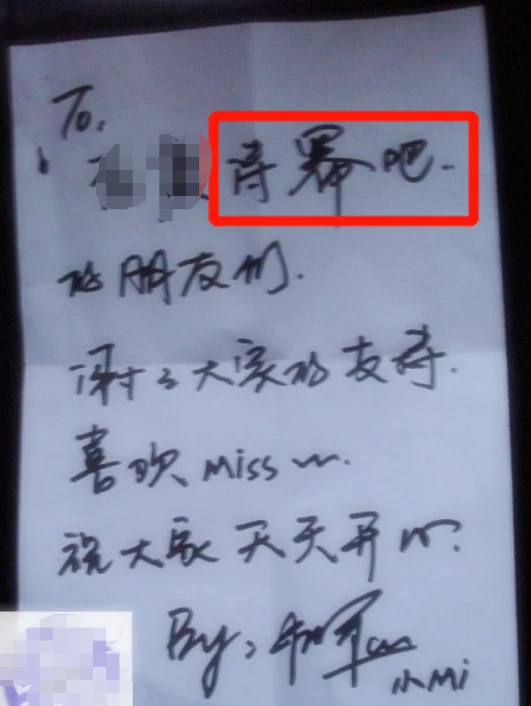 To,
吧.
的朋友们.
谢谢大家的支持.
喜欢 Miss
祝大家天天开心.
By:
小Mi